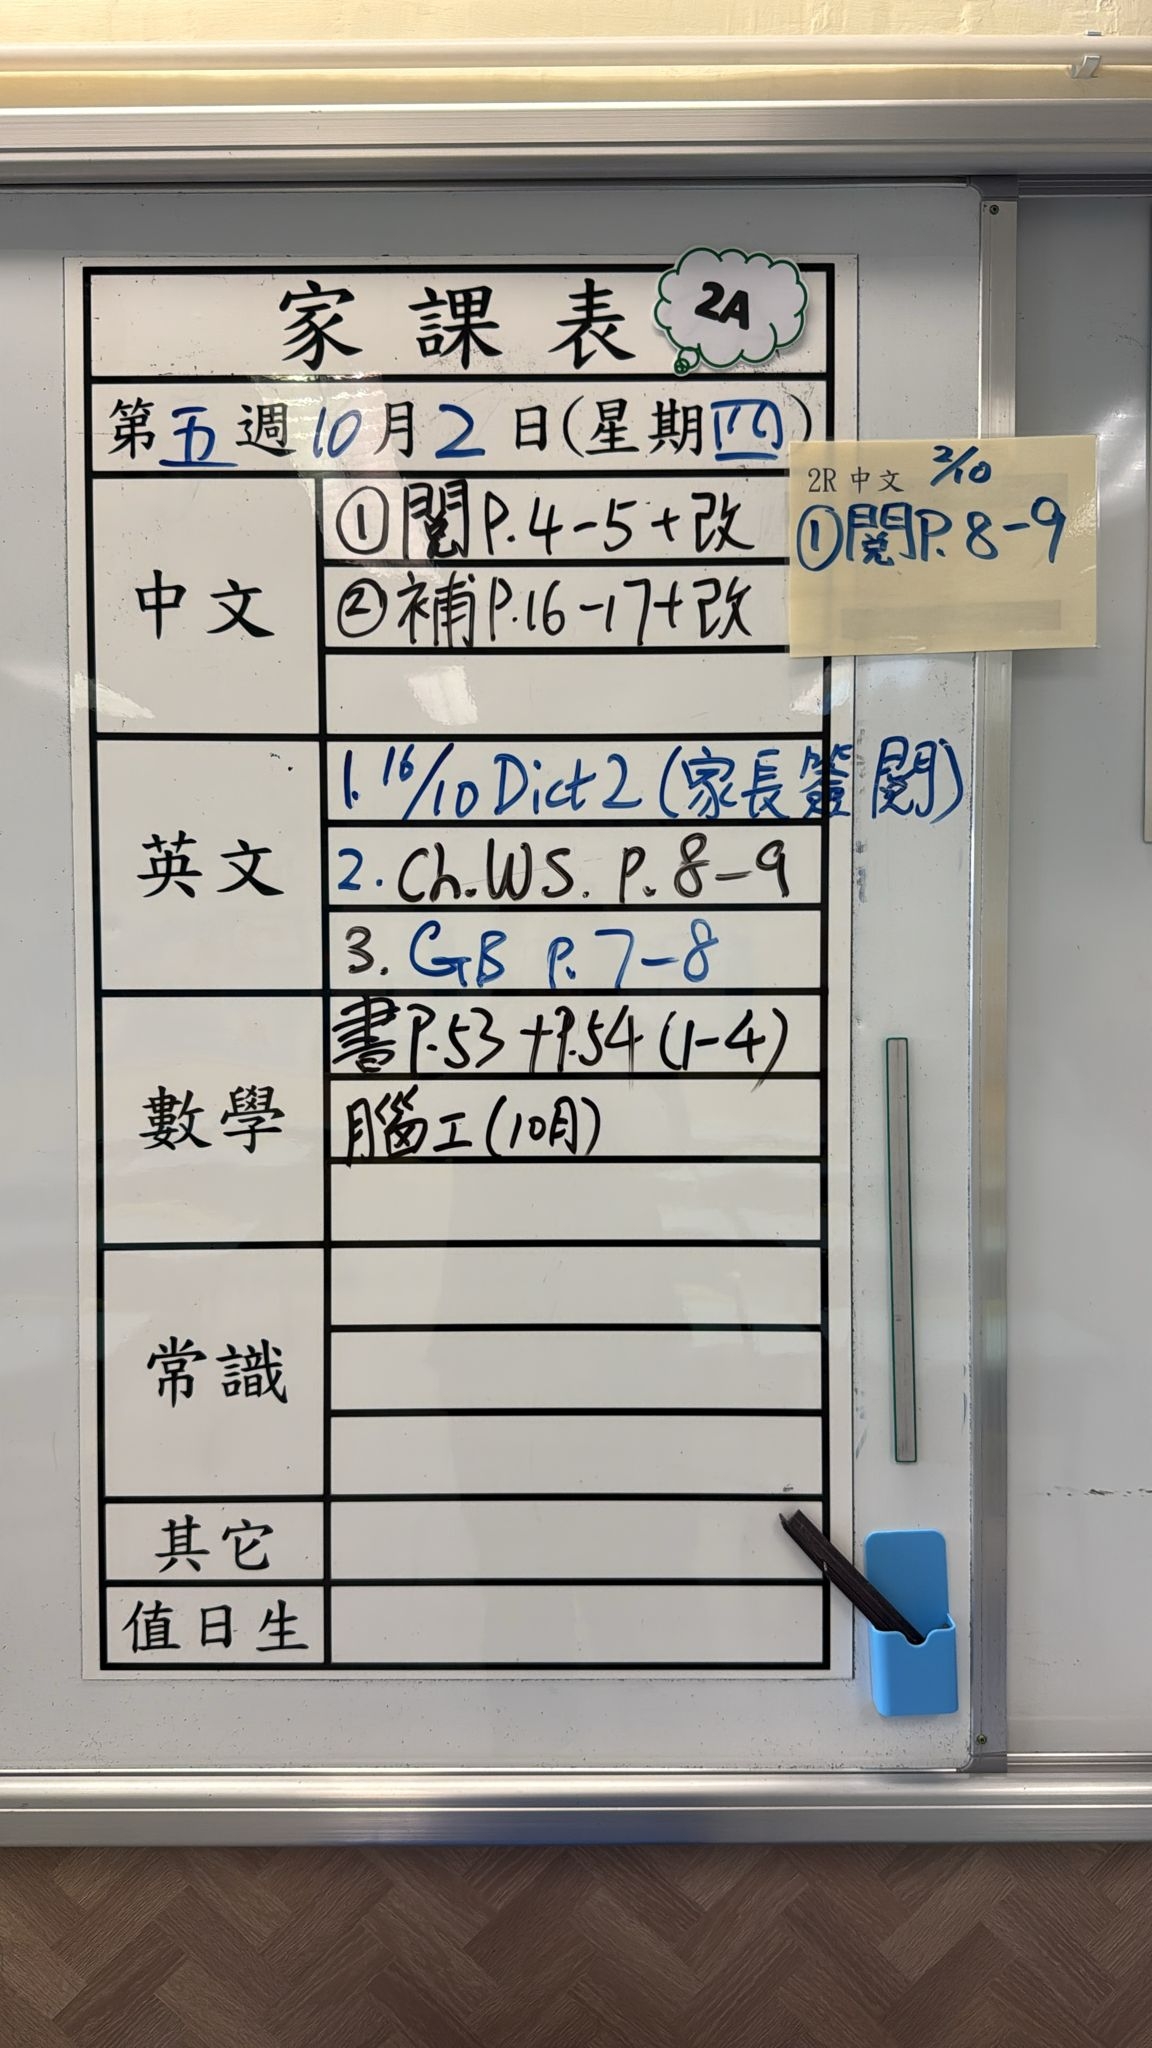 家課表 2A
第五週10月2日(星期四)
中文
①閱P.4-5+改
②補P.16-17+改
2R 中文 2/10
①閱P.8-9
英文
1. 16/10 Dict 2 (家長簽閱)
2. Ch.WS. P. 8-9
3. GB P. 7-8
數學
書P.53+P.54 (1-4)
腦工(10月)
常識
其它
值日生